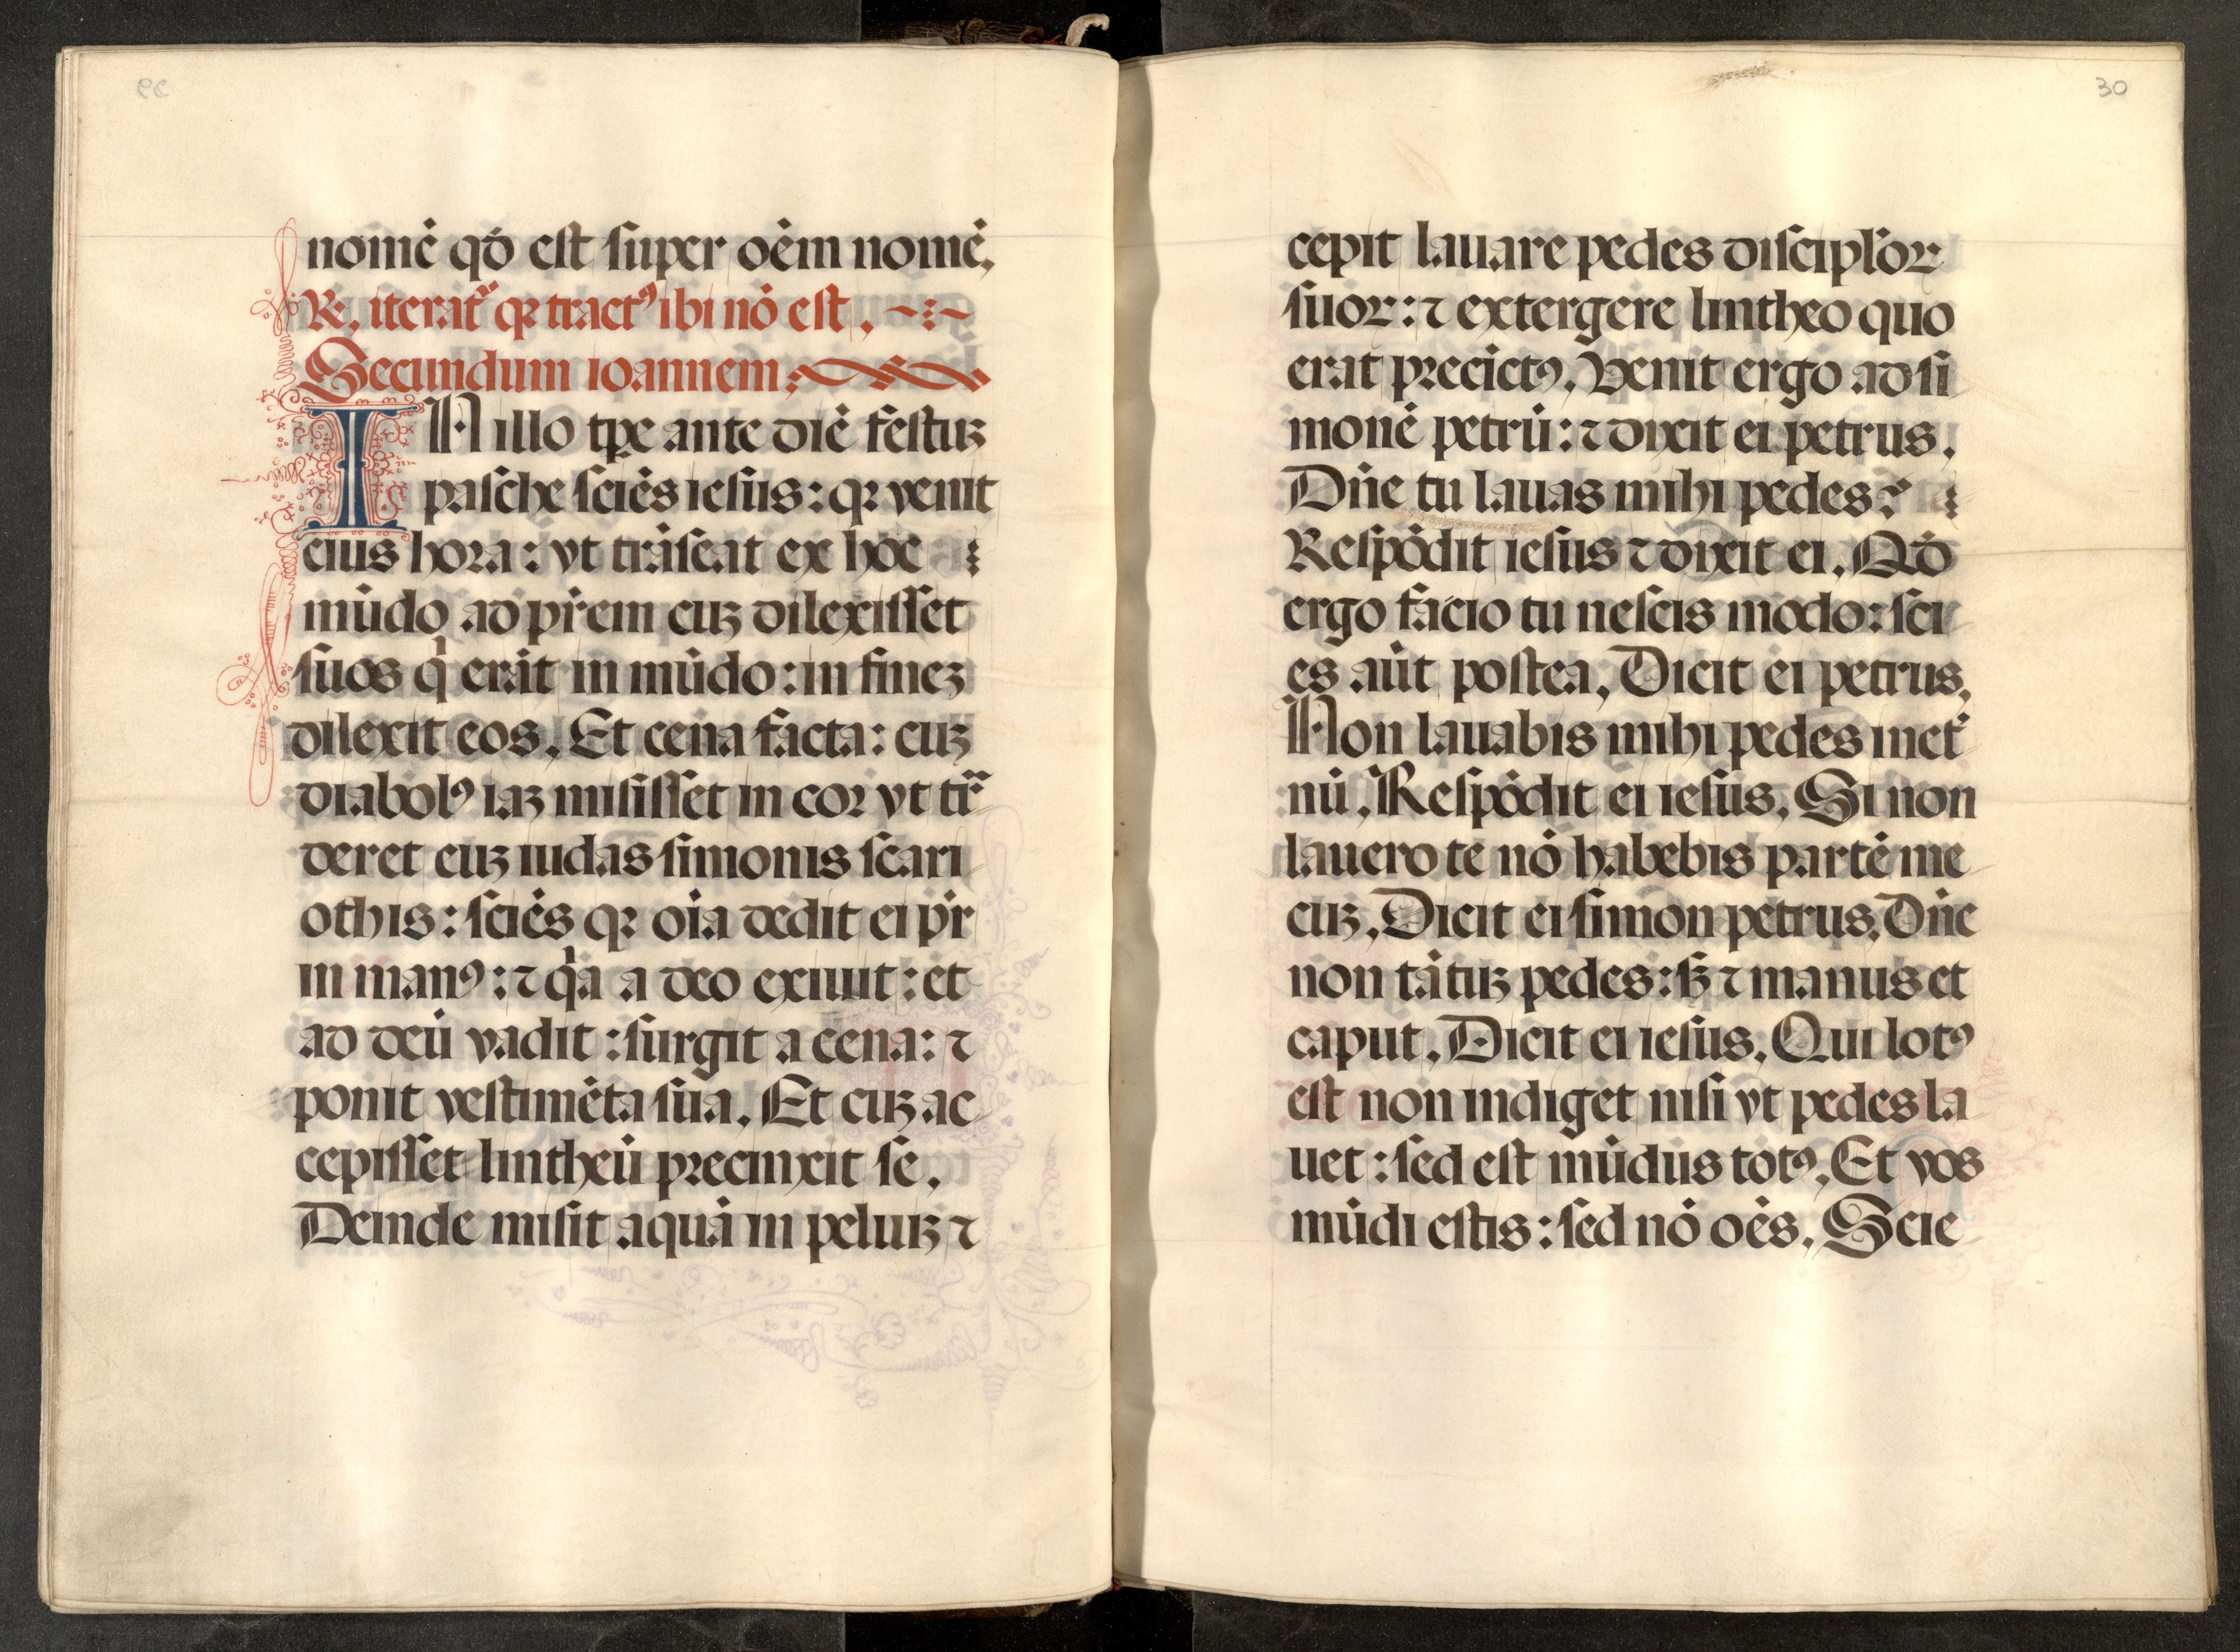 nomē qď est super oēm nomē.
℟. iterat᷑ qꝛ tractꝰ ibi nō est.
Secundum ioannem:
IN illo tꝑe ante diē festuꝫ
pasche sciēs iesus: qꝛ venit
eius hora: vt trāseat ex hoc
mūdo ad prēm cuꝫ dilexisset
suos q̇ erāt in mūdo: in fineꝫ
dilexit eos. Et cena facta: cuꝫ
diabolꝰ iaꝫ misisset in cor vt tr̃
deret euꝫ iudas simonis scari
othis: sciēs qꝛ oīa dedit ei pr̄
in manꝰ: ⁊ q̇a a deo exiuit: et
ad deū vadit: surgit a cena: ⁊
ponit vestimēta sua. Et cuꝫ ac
cepisset lintheū precinxit se.
Deinde misit aquā in peluiꝫ ⁊
30
cepit lauare pedes discipl̄oꝝ
suoꝝ: ⁊ extergere lintheo quo
erat precictꝰ. Venit ergo ad si
monē petrū: ⁊ dixit ei petrus.
Dn̄e tu lauas mihi pedes?
Respōdit iesus ⁊ dixit ei. Qď
ergo facio tu nescis modo: sci
es aūt postea. Dicit ei petrus.
Non lauabis mihi pedes in et̾
nū. Respōdit ei iesus. Si non
lauero te nō habebis partē me
cuꝫ. Dicit ei simon petrus. Dn̄e
non tātuꝫ pedes: sꝫ ⁊ manus et
caput. Dicit ei iesus. Qui lotꝰ
est non indiget nisi vt pedes la
uet: sed est mūdus totꝰ. Et vos
mūdi estis: sed nō oēs. Scie